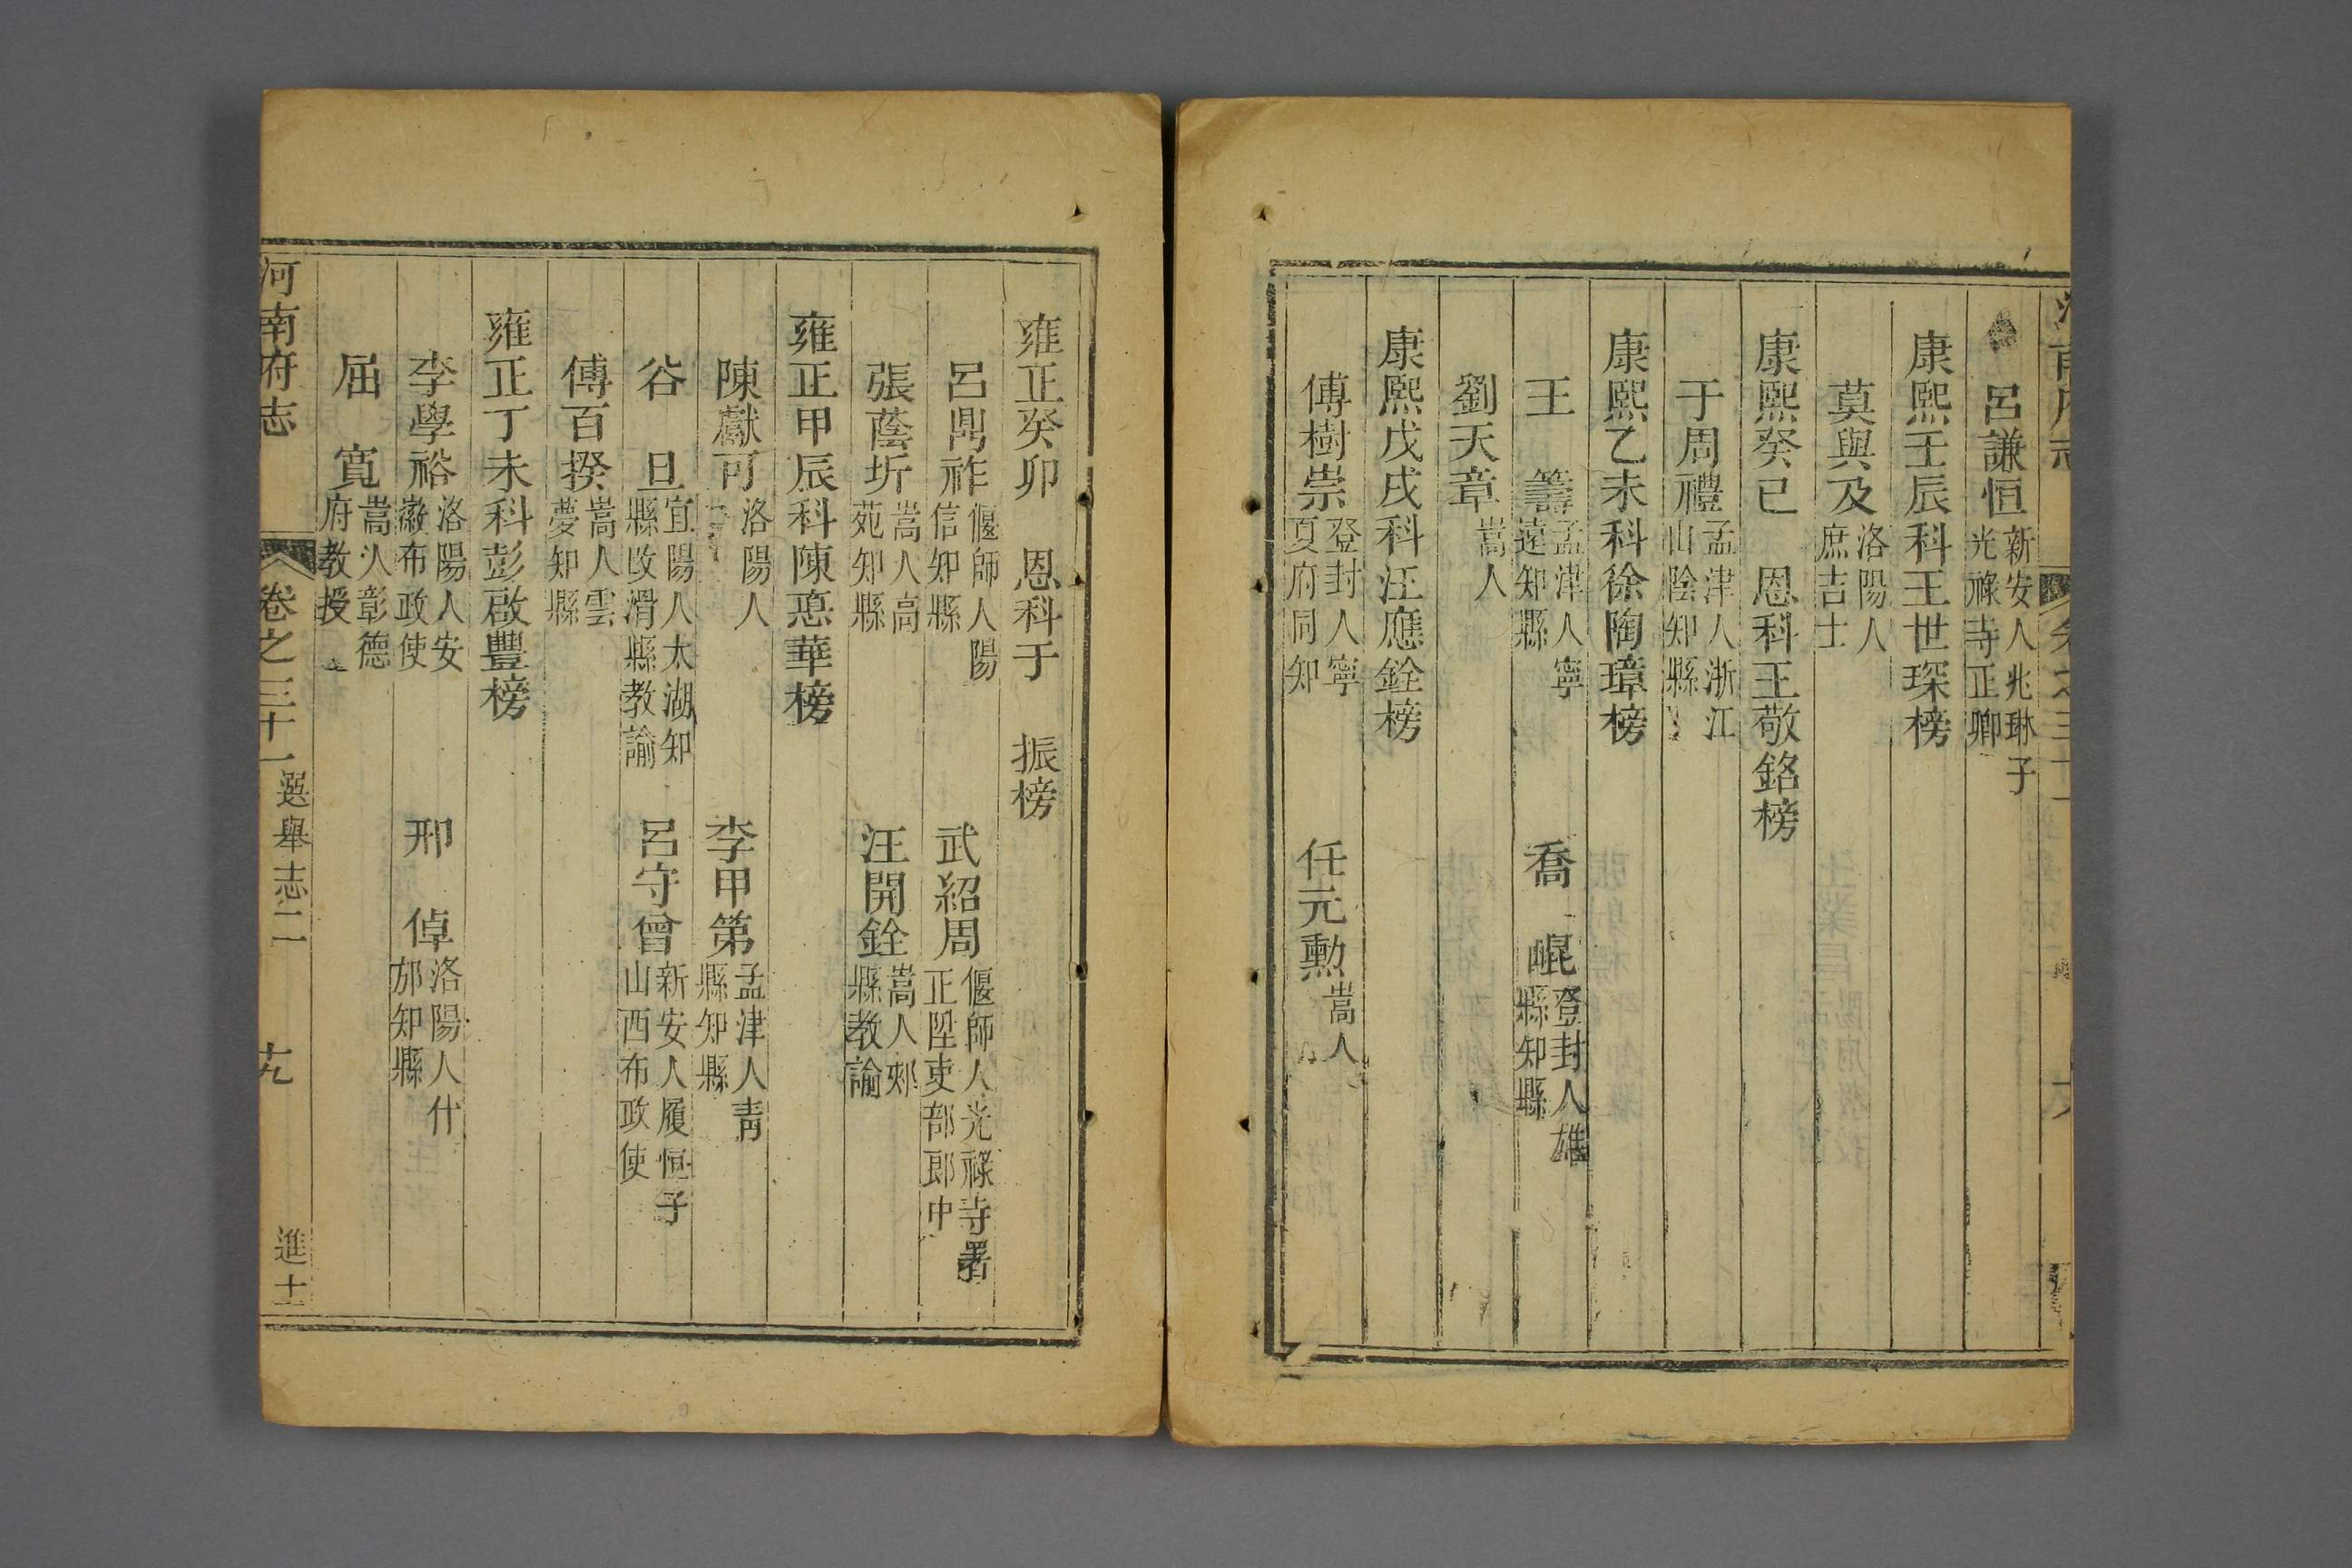 呂謙恒 新安人兆琳子光祿寺正卿
康熙壬辰科王世琛榜
莫與及 洛陽人庶吉士
康熙癸巳 恩科王敬銘榜
于周禮 孟津人浙江山陰知縣
康熙乙未科徐陶璋榜
王 籌 孟津人寧遠知縣 喬 崐 登封人雄縣知縣
劉天章 嵩人
康熙戊戌科汪應銓榜
傅樹崇 登封人寧夏府同知 任元勲 嵩人
雍正癸卯 恩科于 振榜
呂鼎祚 偃師人陽信知縣 武紹周 偃師人光祿寺署正陞吏部郎中
張蔭圻 嵩人高苑知縣 汪開銓 嵩人郟縣教諭
雍正甲辰科陳悳華榜
陳獻可 洛陽人 李甲第 孟津人青縣知縣
谷 旦 宜陽人太湖知縣改滑縣教諭 呂守曾 新安人履恒子山西布政使
傅百揆 嵩人雲夢知縣
雍正丁未科彭啟豐榜
李學裕 洛陽人安徽布政使 邢 倬 洛陽人什邡知縣
屈 寛 嵩人彰德府教授
河南府志 卷之三十一 選舉志二 十九 進士